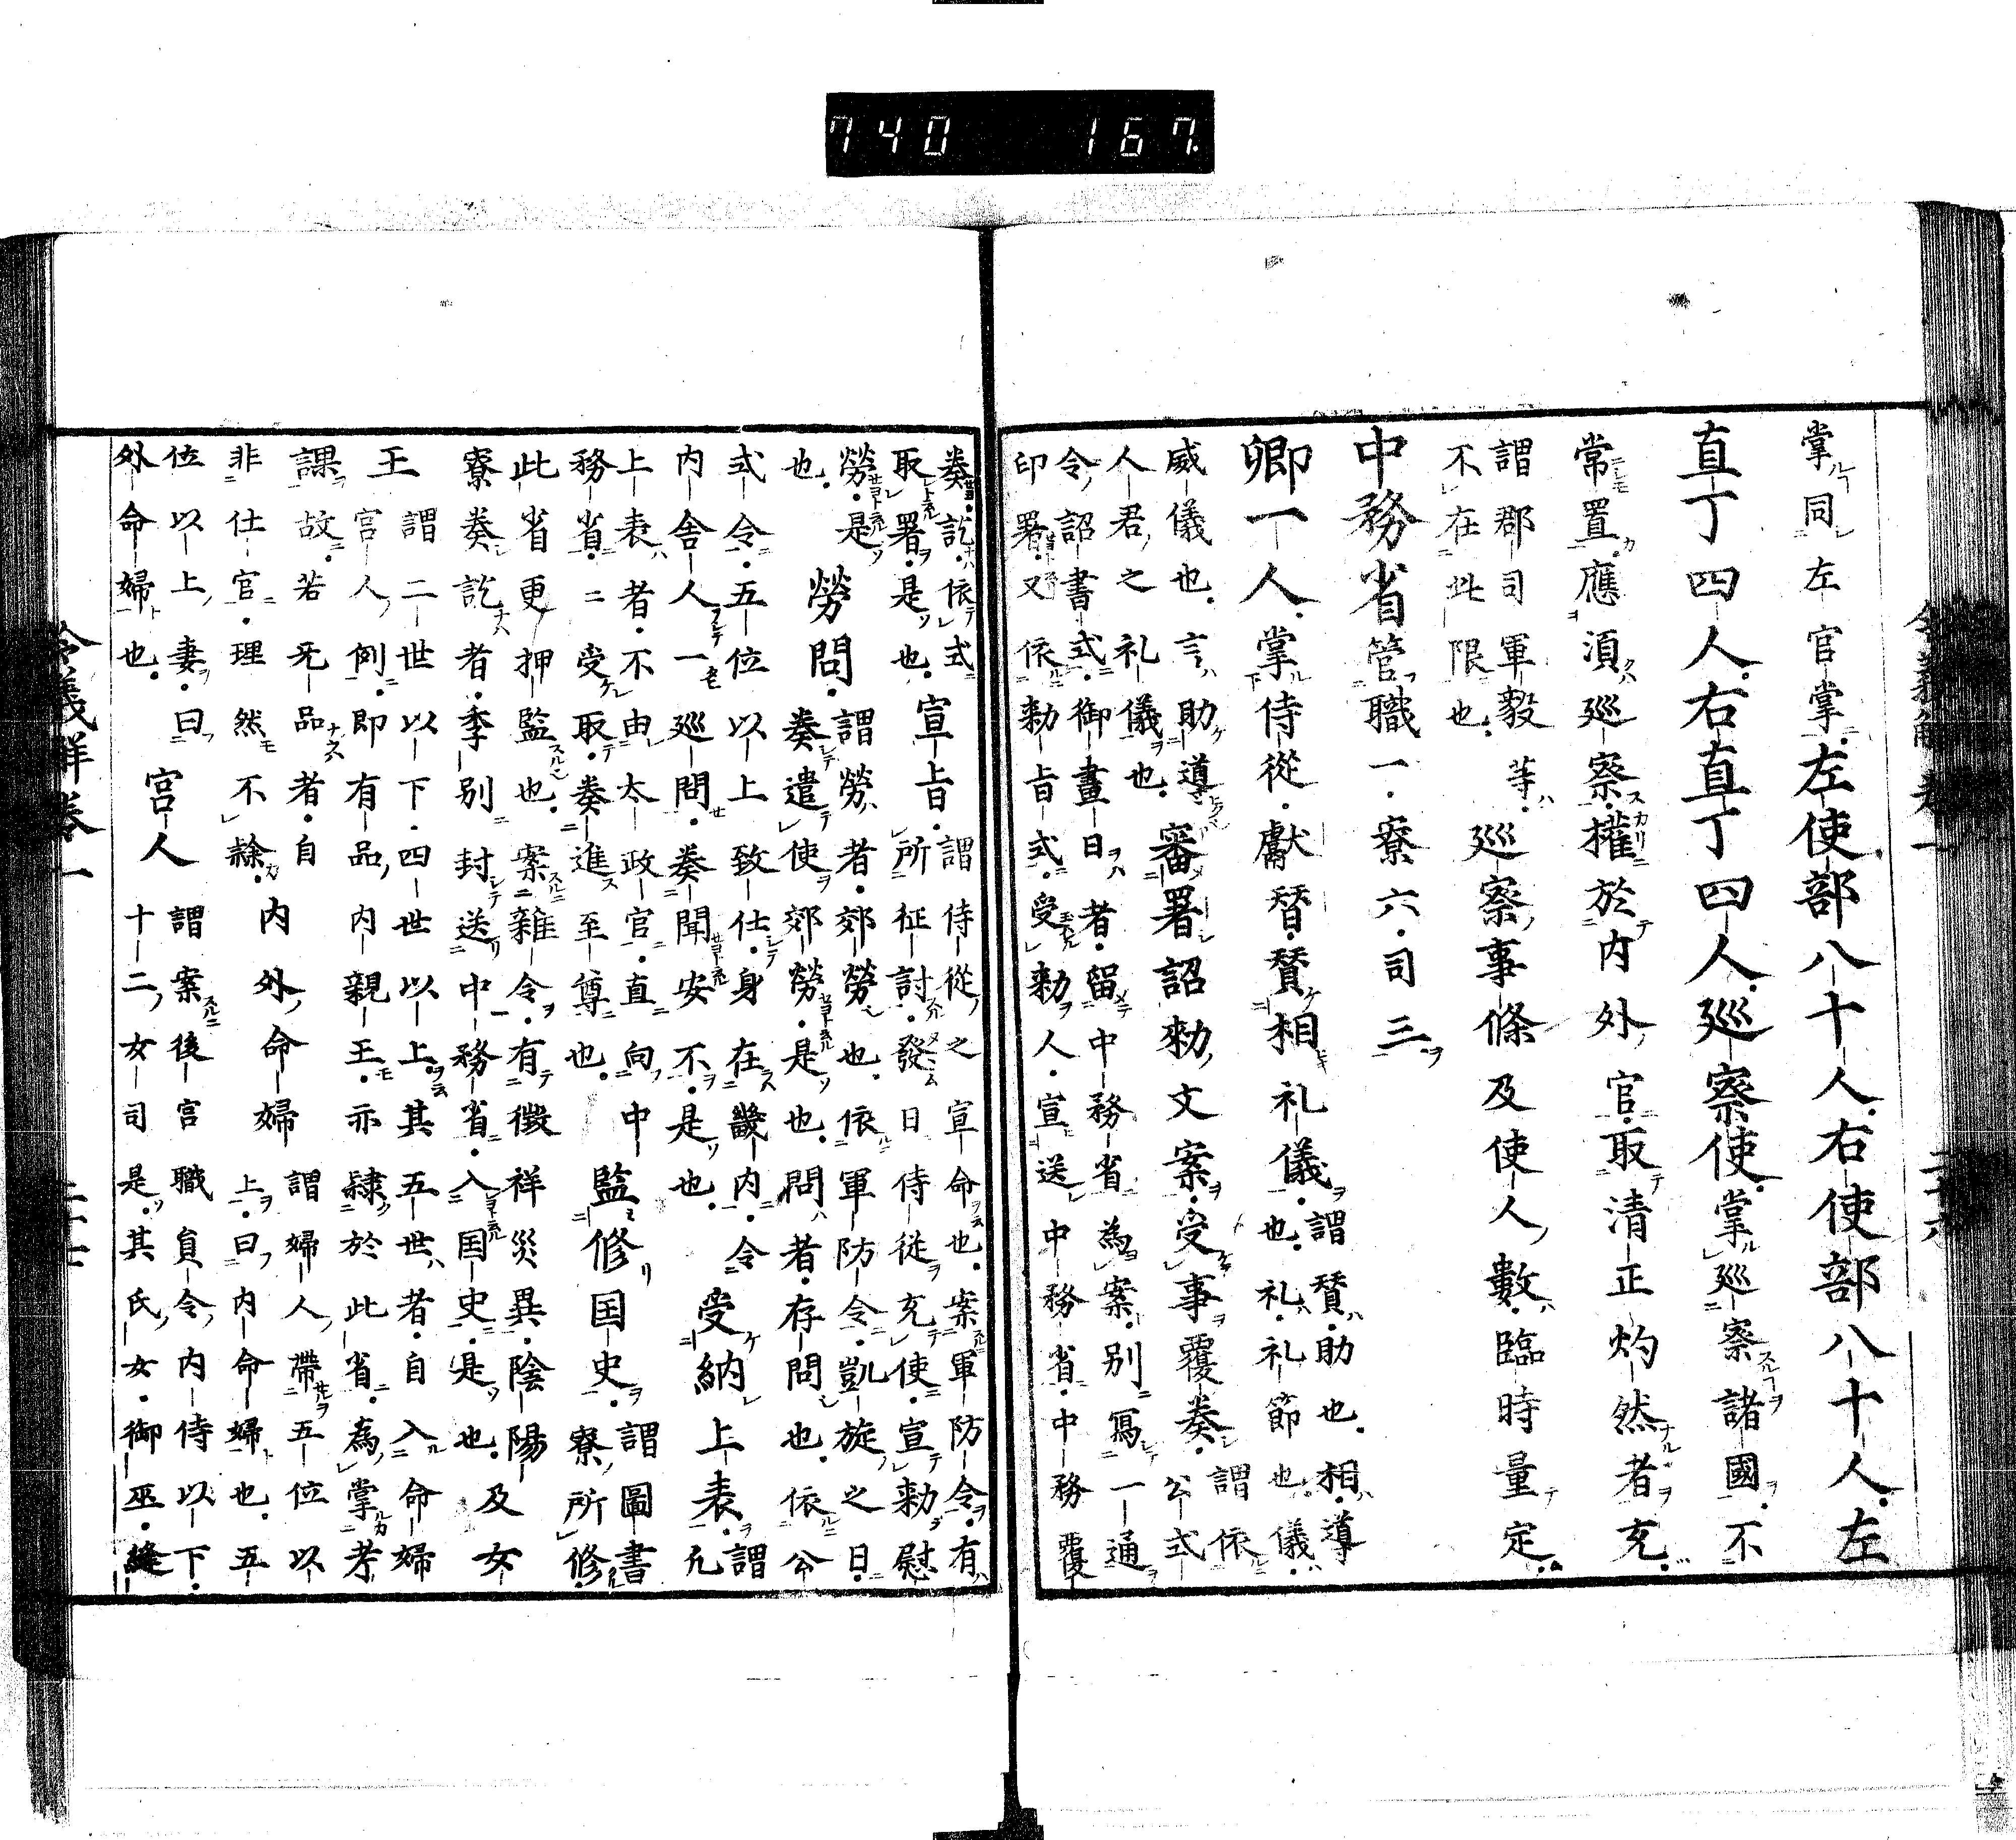 740 167
掌同左官掌左使部八十人右使部八十人左
直丁四人右直丁四人巡察使掌巡察諸國不
常置應須巡察權於內外官取清正灼然者充
謂郡司軍毅等
不在此限也
巡察事條及使人數臨時量定
中務省管職一寮六司三
卿一人掌侍從獻替贊相礼儀謂贊助也相導
也礼礼節也儀
威儀也言助導
人君之礼儀也
審署詔勅文案受事覆奏謂依
公式
令詔書式御畫日者留中務省為案別寫一通
印署又依勅旨式受勅人宣送中務省中務覆
奏訖依式
取署是也
宣旨
謂侍從之宣命也案軍防令有
所征討發日侍從充使宣勅慰
勞是
也
勞問
謂勞者郊勞也依軍防令凱旋之日
奏遣使郊勞是也問者存問也依公
式令五位以上致仕身在畿內令
內舍人一巡問奏聞安不是也
受納上表
謂
凡
上表者不由太政官直向中
務省受取奏進至尊也
監修国史
謂圖書
寮所修
此省更押監也案雜令有徵祥災異陰陽
寮奏訖者季別封送中務省入国史是也
及女
王
謂二世以下四世以上其五世者自入命婦
宮人例即有品內親王亦隷於此省為掌考
課故若死品者自
非仕官理然不隸
內外命婦
謂婦人帶五位以
上曰內命婦也五
位以上妻曰
外命婦也
宮人
謂案後宮職員令內侍以下
十二女司是其氏女御巫縫
令義解卷一